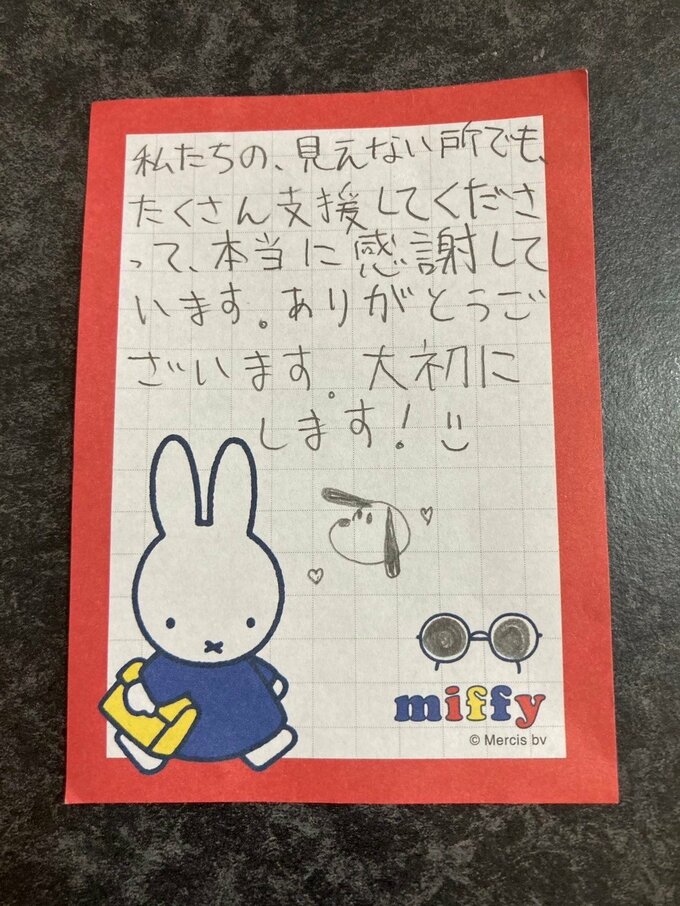 私たちの、見えない所でも、
たくさん支援してくださ
って、本当に感謝して
います。ありがとうご
ざいます。大初に
します!
miffy
© Mercis bv